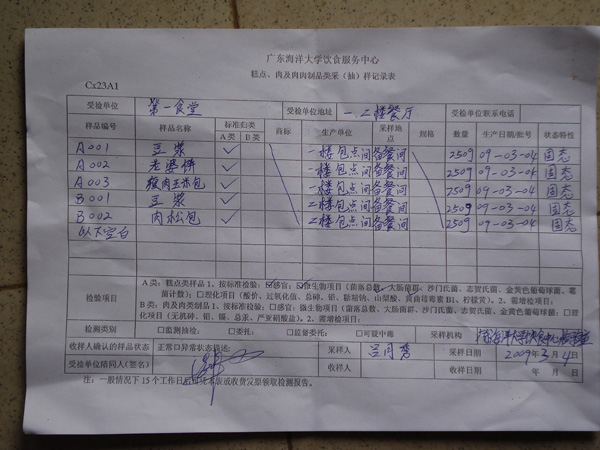 广东海洋大学饮食服务中心
糕点、肉及肉肉制品类采（抽）样记录表
Cx23A1
受检单位 第一食堂 受检单位地址 一.二楼餐厅 受检单位联系电话
样品编号 样品名称 标准归类 A类 B类 商标 生产单位 采样地点 规格 数量 生产日期/批号 状态特性
A001 豆浆 ✓ 一楼包点间 备餐间 250g 09-03-04 固态
A002 老婆饼 ✓ 一楼包点间 备餐间 250g 09-03-04 固态
A003 瘦肉玉米包 ✓ 一楼包点间 备餐间 250g 09-03-04 固态
B001 豆浆 ✓ 二楼包点间 备餐间 250g 09-03-04 固态
B002 肉松包 ✓ 二楼包点间 备餐间 250g 09-03-04 固态
以下空白
检验项目
A类：糕点类样品1、按标准检验：☑感官；☑微生物项目（菌落总数、大肠菌群、沙门氏菌、志贺氏菌、金黄色葡萄球菌、霉
菌计数）；□理化项目（酸价、过氧化值、总砷、铅、糖精钠、山梨酸、黄曲霉毒素B1、柠檬黄）。2、需增检项目：
B类：肉及肉类制品1、按标准检验：□感官；微生物项目（菌落总数、大肠菌群、沙门氏菌、志贺氏菌、金黄色葡萄球菌）；□理
化项目（无机砷、铅、镉、总汞、亚硝酸盐）。2、需增检项目：
检测类别 □监测抽检： □委托： □监督委托： □可疑中毒 采样机构
收样人确认的样品状态 正常口异常状态描述： 采样人 吕月秀 采样日期 2009年3月4日
受检单位陪同人(签名) 收样人 收样日期 年 月 日
注：一般情况下15个工作日 或收费凭据领取检测报告。